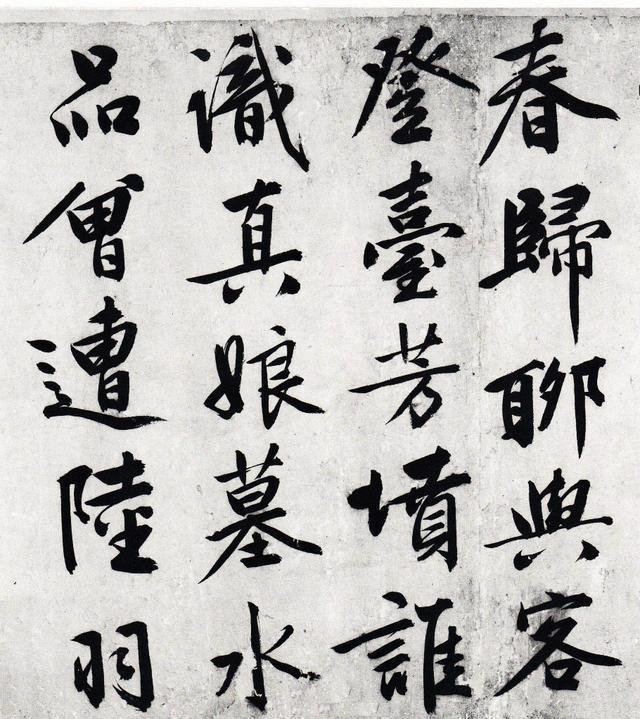 春歸聊與客
登臺芳墳誰
識真娘墓水
品曾遭陸羽